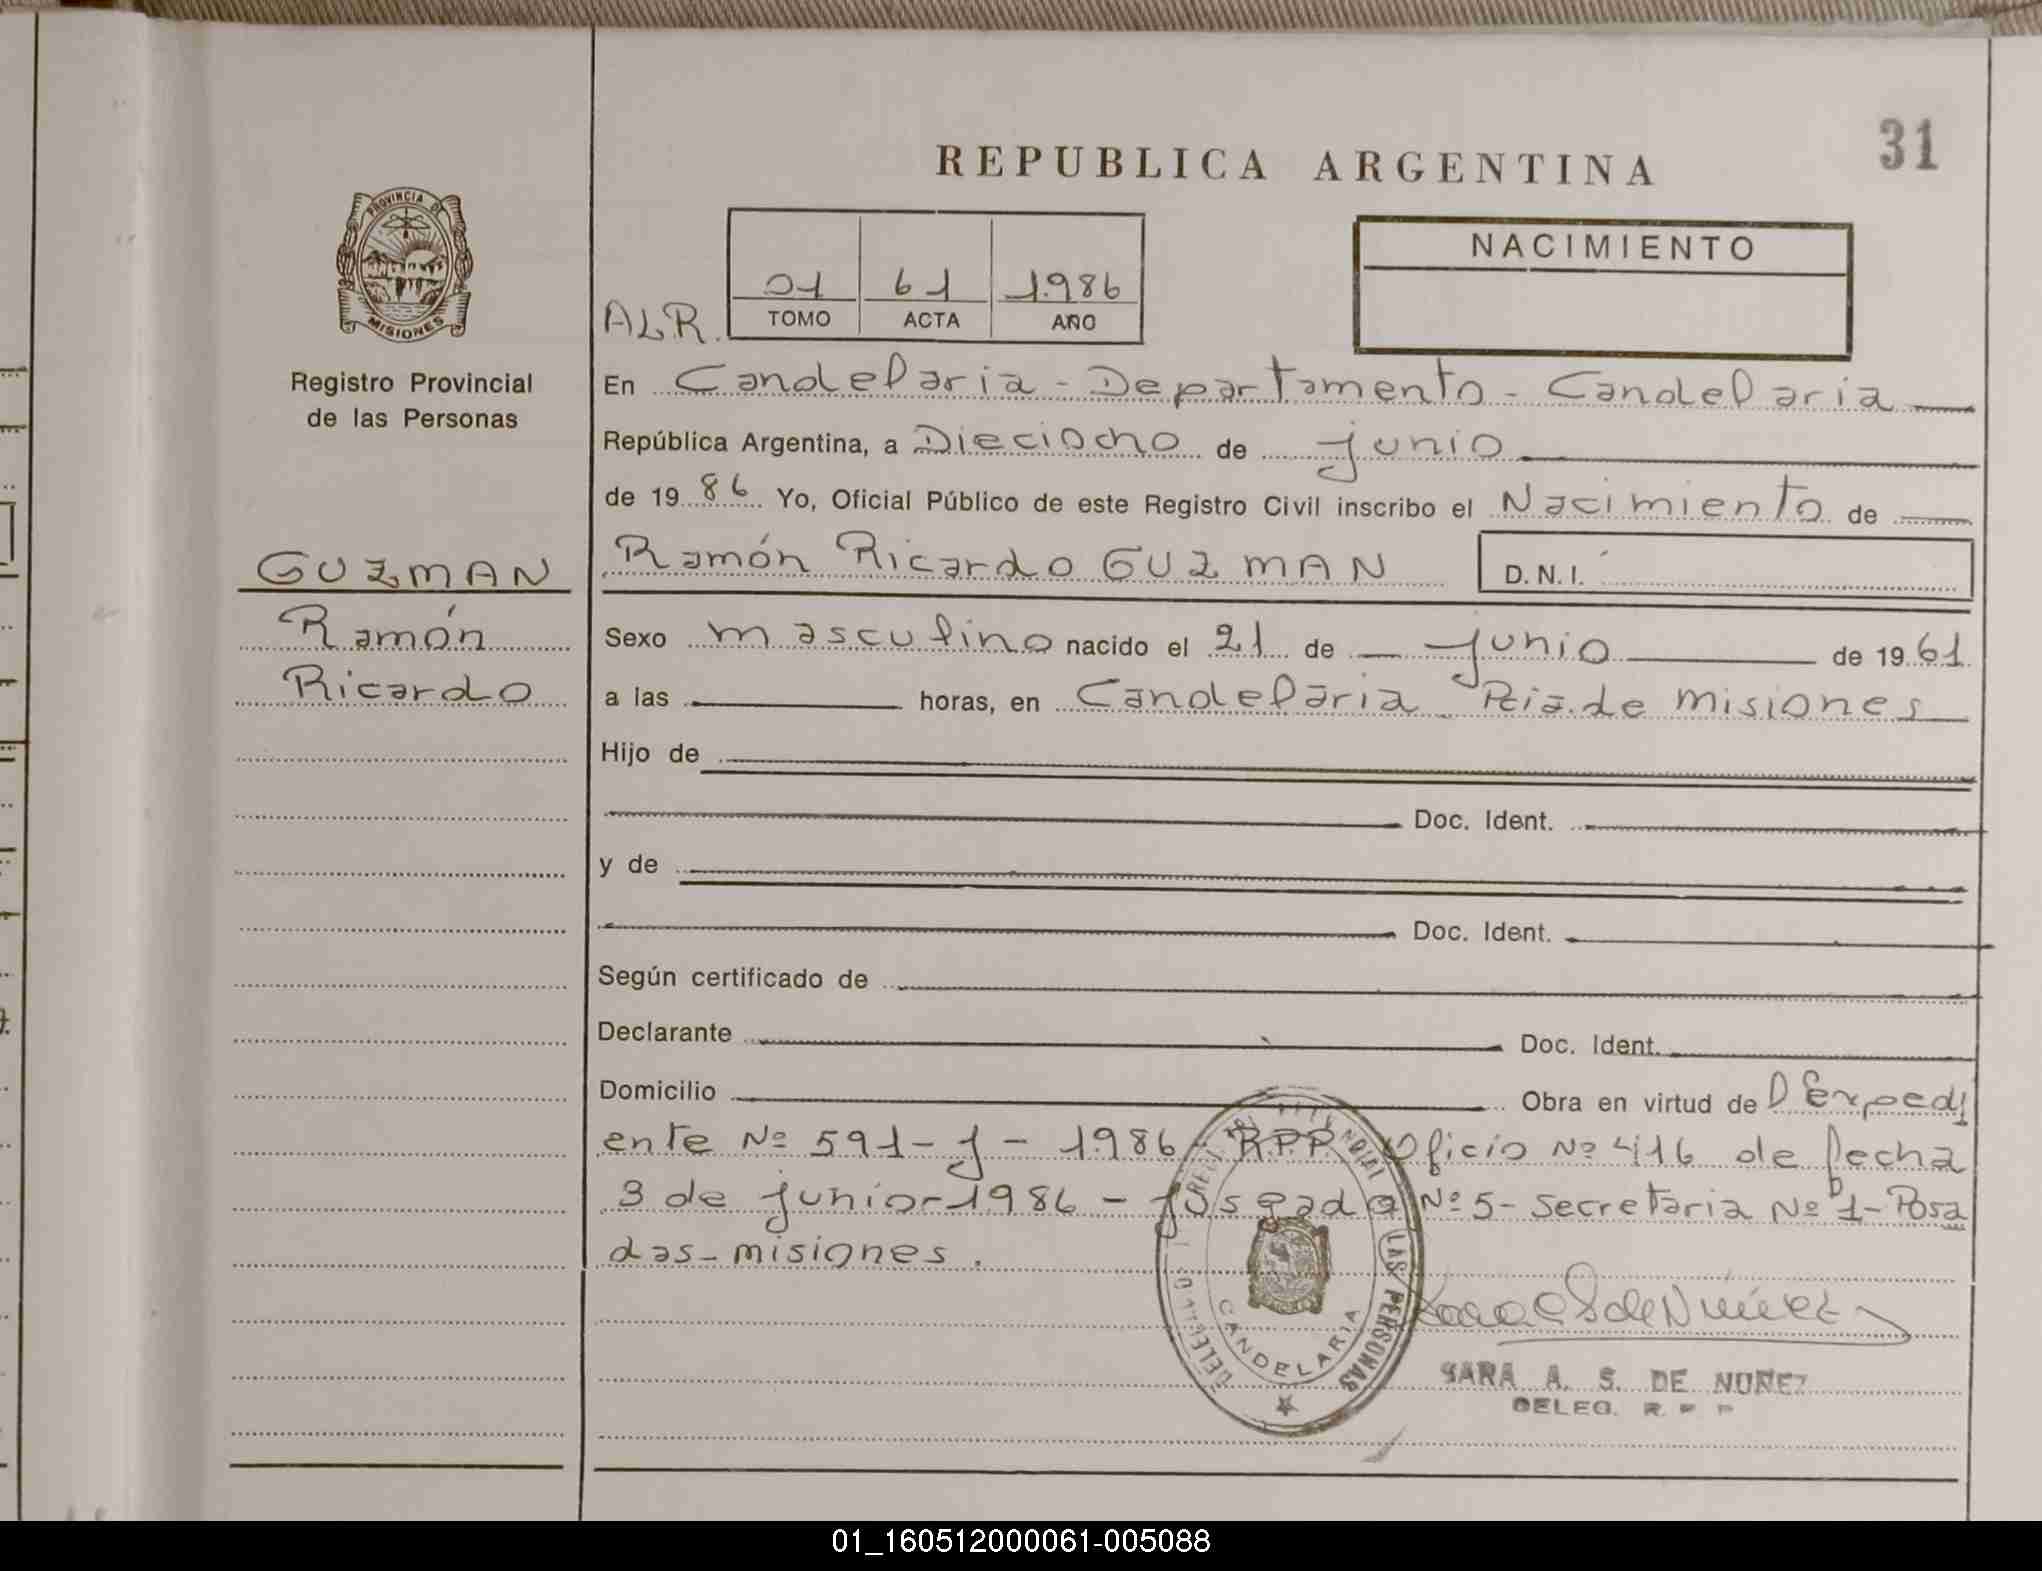 31
REPUBLICA ARGENTINA
PROVINCIA DE
MISIONES
Registro Provincial
de las Personas
NACIMIENTO
01 61 1.986
TOMO ACTA AÑO
A.L.R.
En Candelaria - Departamento - Candelaria
República Argentina, a Dieciocho de junio
de 19 86 Yo, Oficial Público de este Registro Civil inscribo el Nacimiento de
GUZMAN
Ramón
Ricardo
Ramón Ricardo GUZMAN D.N.I.
Sexo masculino nacido el 21 de junio de 19 61
a las horas, en Candelaria Pcia. de Misiones
Hijo de
Doc. Ident.
y de
Doc. Ident.
Según certificado de
Declarante Doc. Ident.
Domicilio Obra en virtud de l Expedi
ente Nº 591-J-1.986- R.P.P. Oficio Nº 416 de fecha
3 de junio-1986 - Jusgado Nº 5- Secretaria Nº 1- Posa
das- misiones.
LAS PERSONAS
CANDELARIA
SARA A. S. DE NUÑEZ
DELEG. R. P. P
01_160512000061-005088